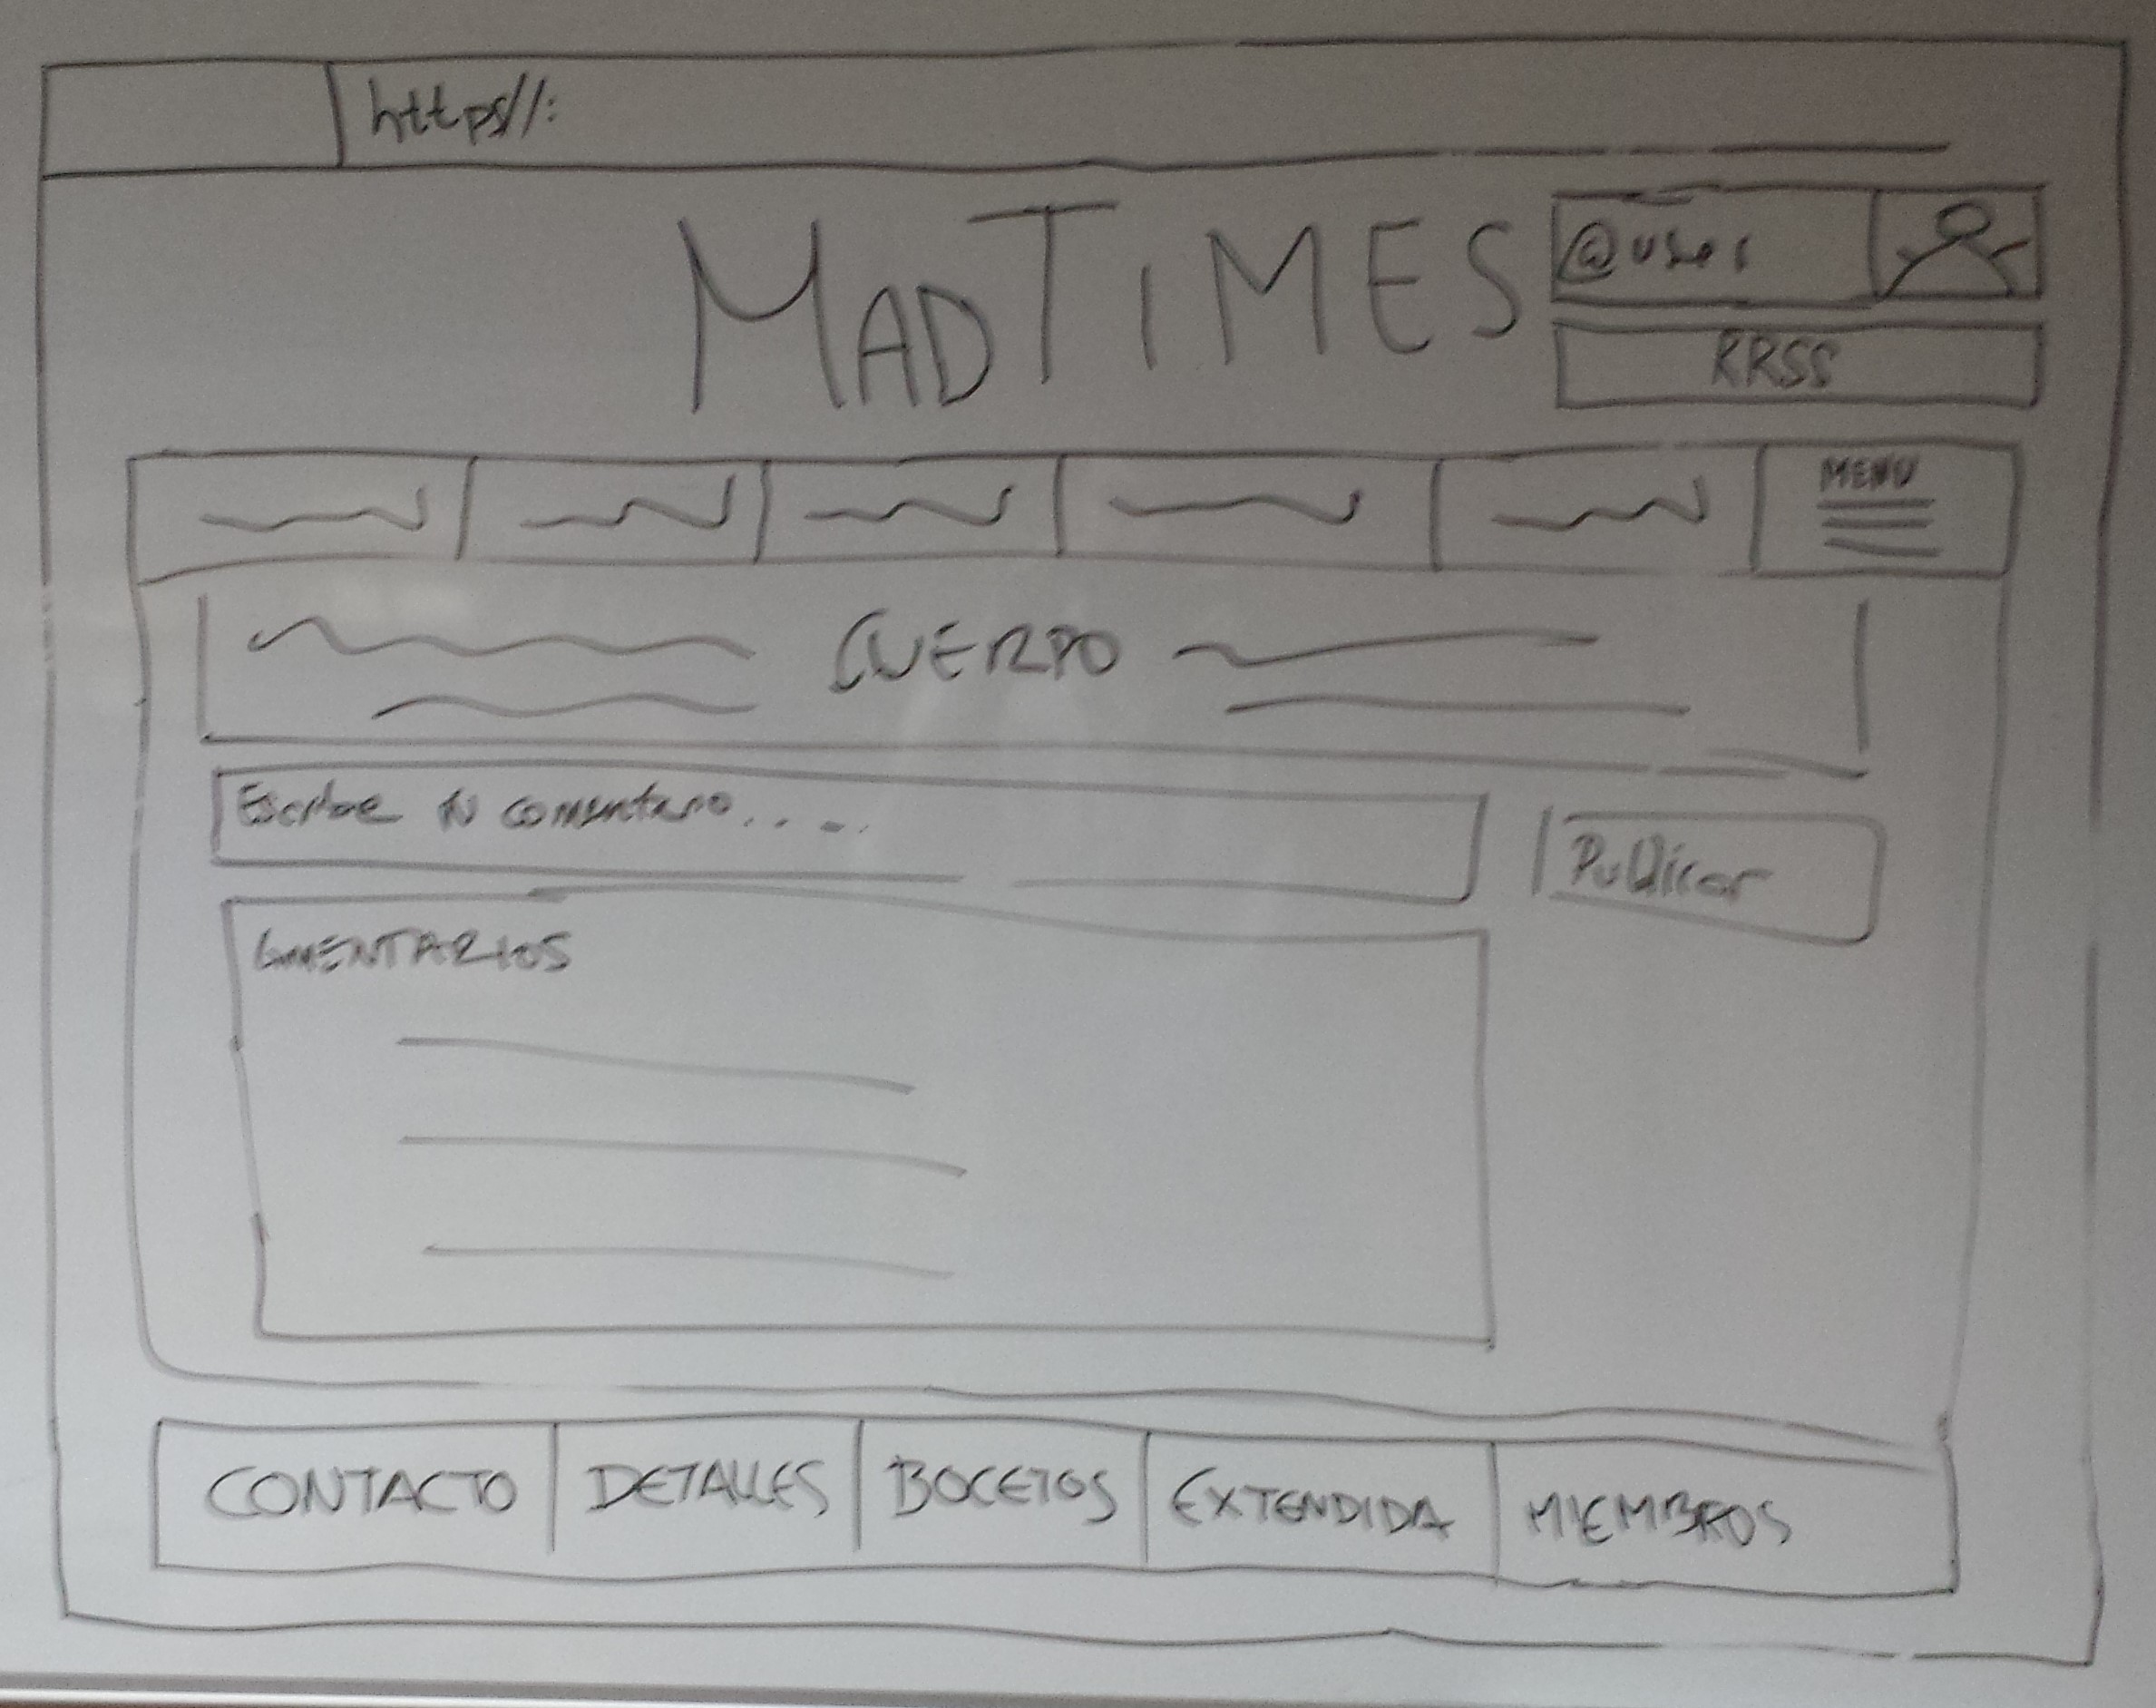 https//:
MADTiMES
@user
RRSS
MENU
CUERPO
Escribe tu comentario.....
Publicar
COMENTARIOS
CONTACTO DETALLES BOCETOS EXTENDIDA MIEMBROS